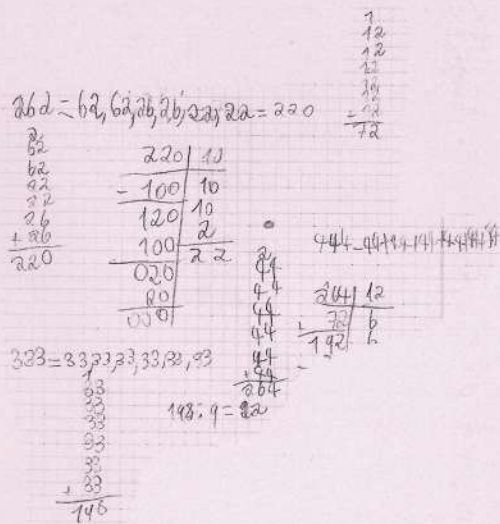 1
12
12
12
12
12
12
72
262 = 62, 62, 26, 26, 22, 22 = 220
2
62
62
22
22
26
+ 26
220
220 | 10
- 100 | 10
120 | 10
100 | 2
020 | 22
20
000
2
44
44
44
44
44
+ 44
264
264 | 12
72 | 6
192 | 6
333 = 33, 33, 33, 33, 33, 33
1
33
33
33
33
33
+ 33
198 : 9 = 22